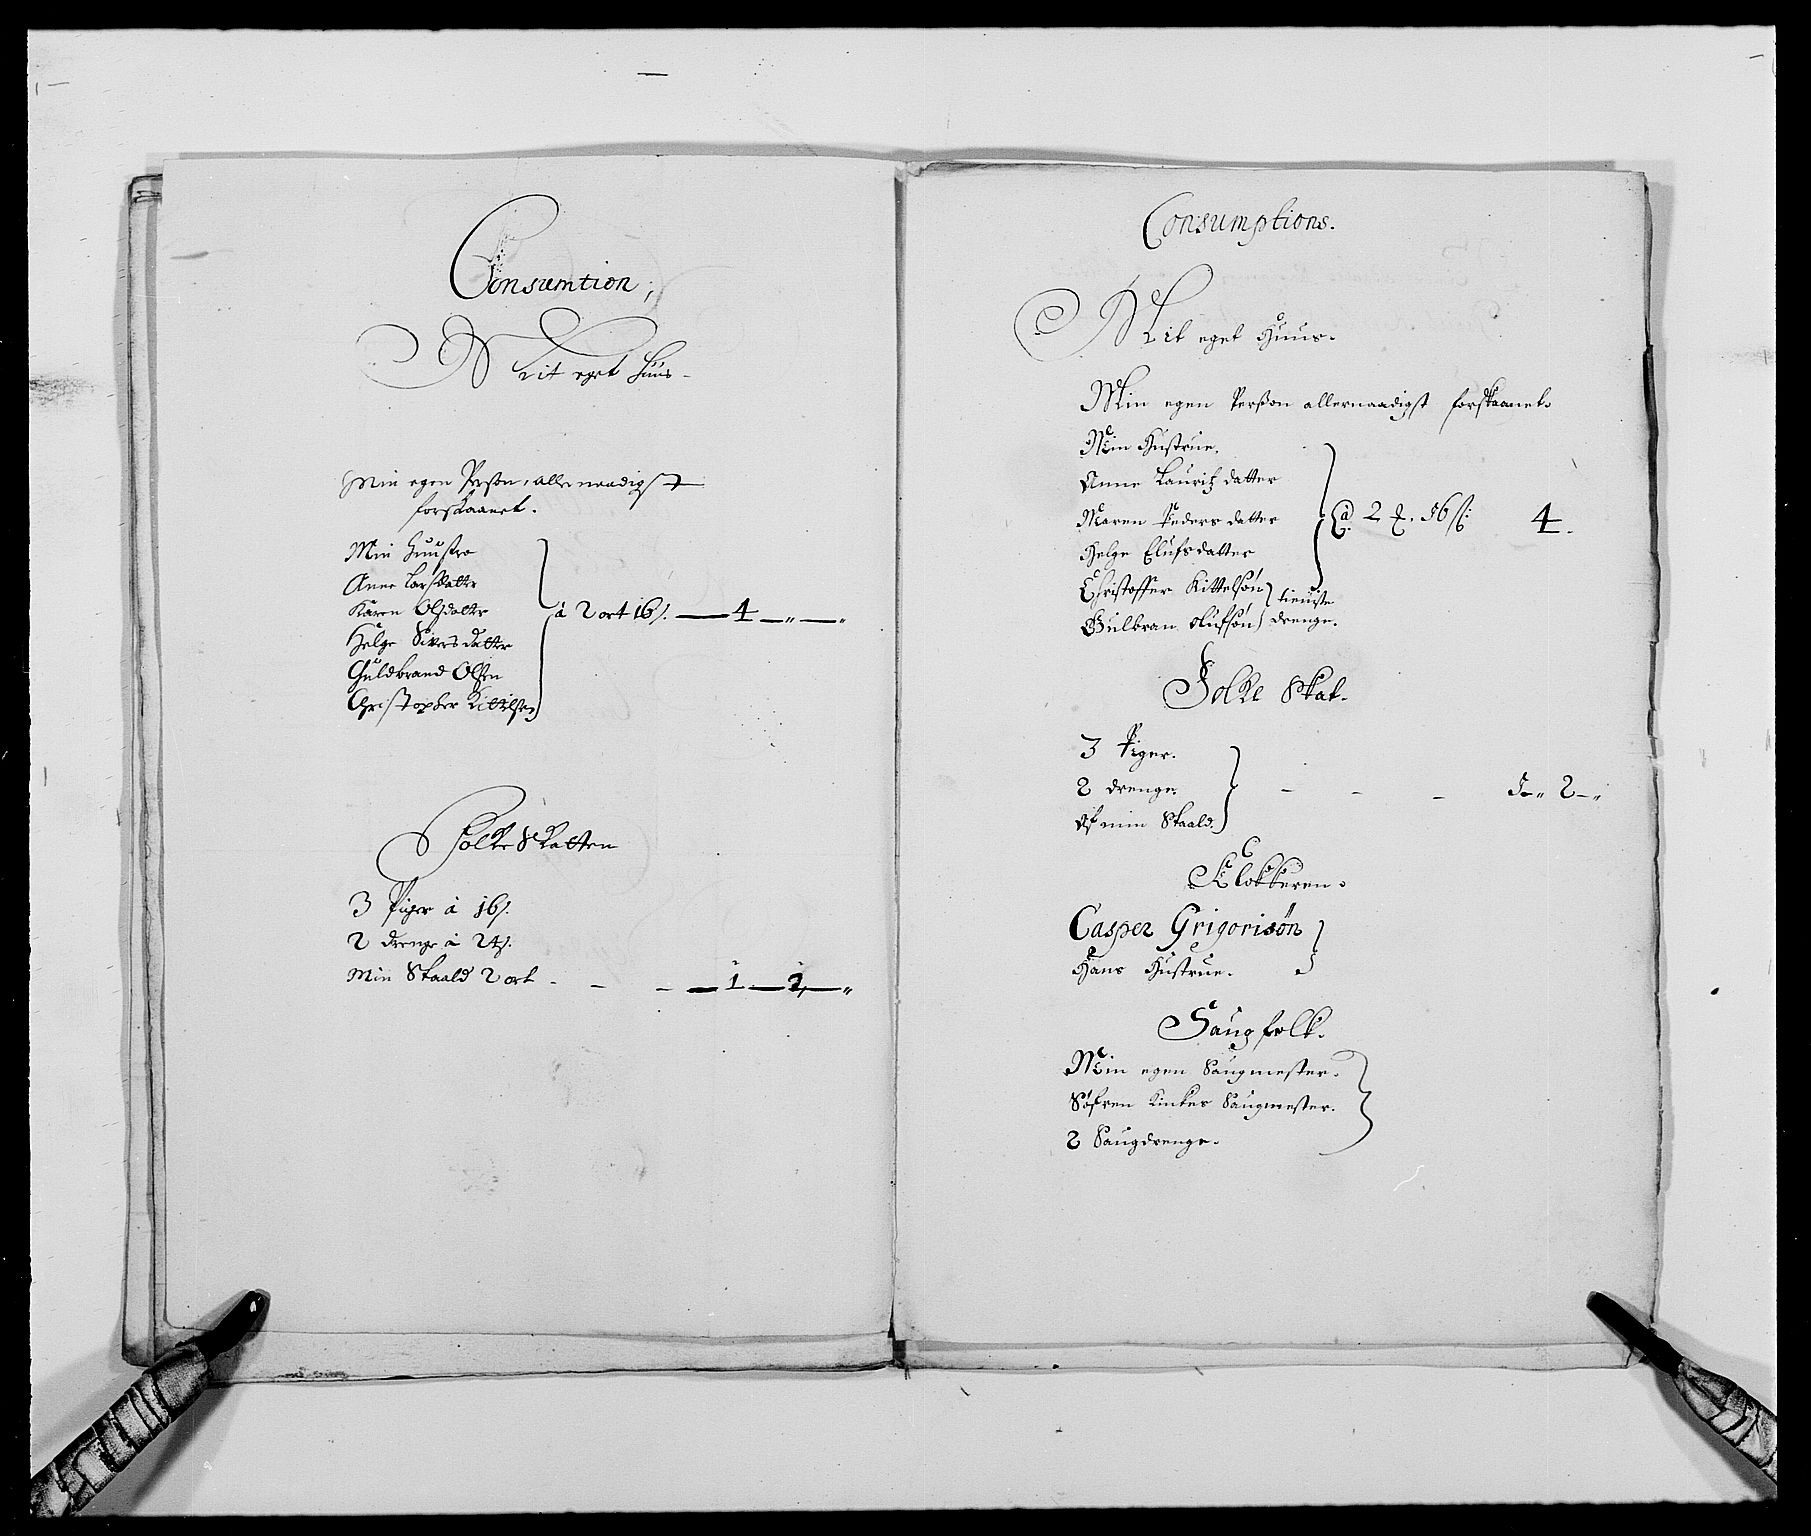 Consumtion,
Mit eget Huus
Min egen Person, allernaadigst
forskaanet.
Min Huustro
Anne Larsdatter
Karen Olsdatter
Helge Siversdatter
Guldbrand Olsen
Christopher Kittilsen
à 2 ort 16 s. 4 — „ — „
Folke Skatten
3 Piger à 16 s.
2 drenge à 24 s.
Min Skaald 2 ort - - - 1 — 2 — „
Consumptions.
Mit eget Huus.
Min egen Person allernaadigst forskaanet.
Min Hustrue.
Anne Lauritz datter
Maren Peders datter
Helge Elufsdatter
Christoffer Kittelsøn
Gulbran Olufsøn
tieniste
drenge.
à 2 16 s: 4.
Folke Skat.
3 Piger.
2 drenge.
Af min Skaald.
- - - 1 „ 2 - „
Klokkeren.
Casper Grigorisøn
Hans Hustrue.
Saugfolk.
Min egen Saugmester.
Søfren Kinkes Saugmester.
2 Saugdrenge.